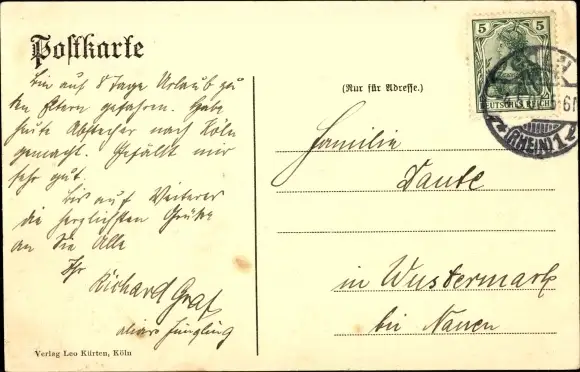 Postkarte
Bin auf 8 Tage Urlaub zu
den Eltern gefahren. Habe
heute Abstecher nach Köln
gemacht. Gefällt mir
sehr gut.
Bis auf Weiteres
die herzlichsten Grüße
an Sie Alle
Ihr
Richard Graf
Verlag Leo Kürten, Köln
(Nur für Adresse.)
Familie
Daube
in Wustermark
bei Nauen
5 5
DEUTSCHES REICH
(RHEIN) 1